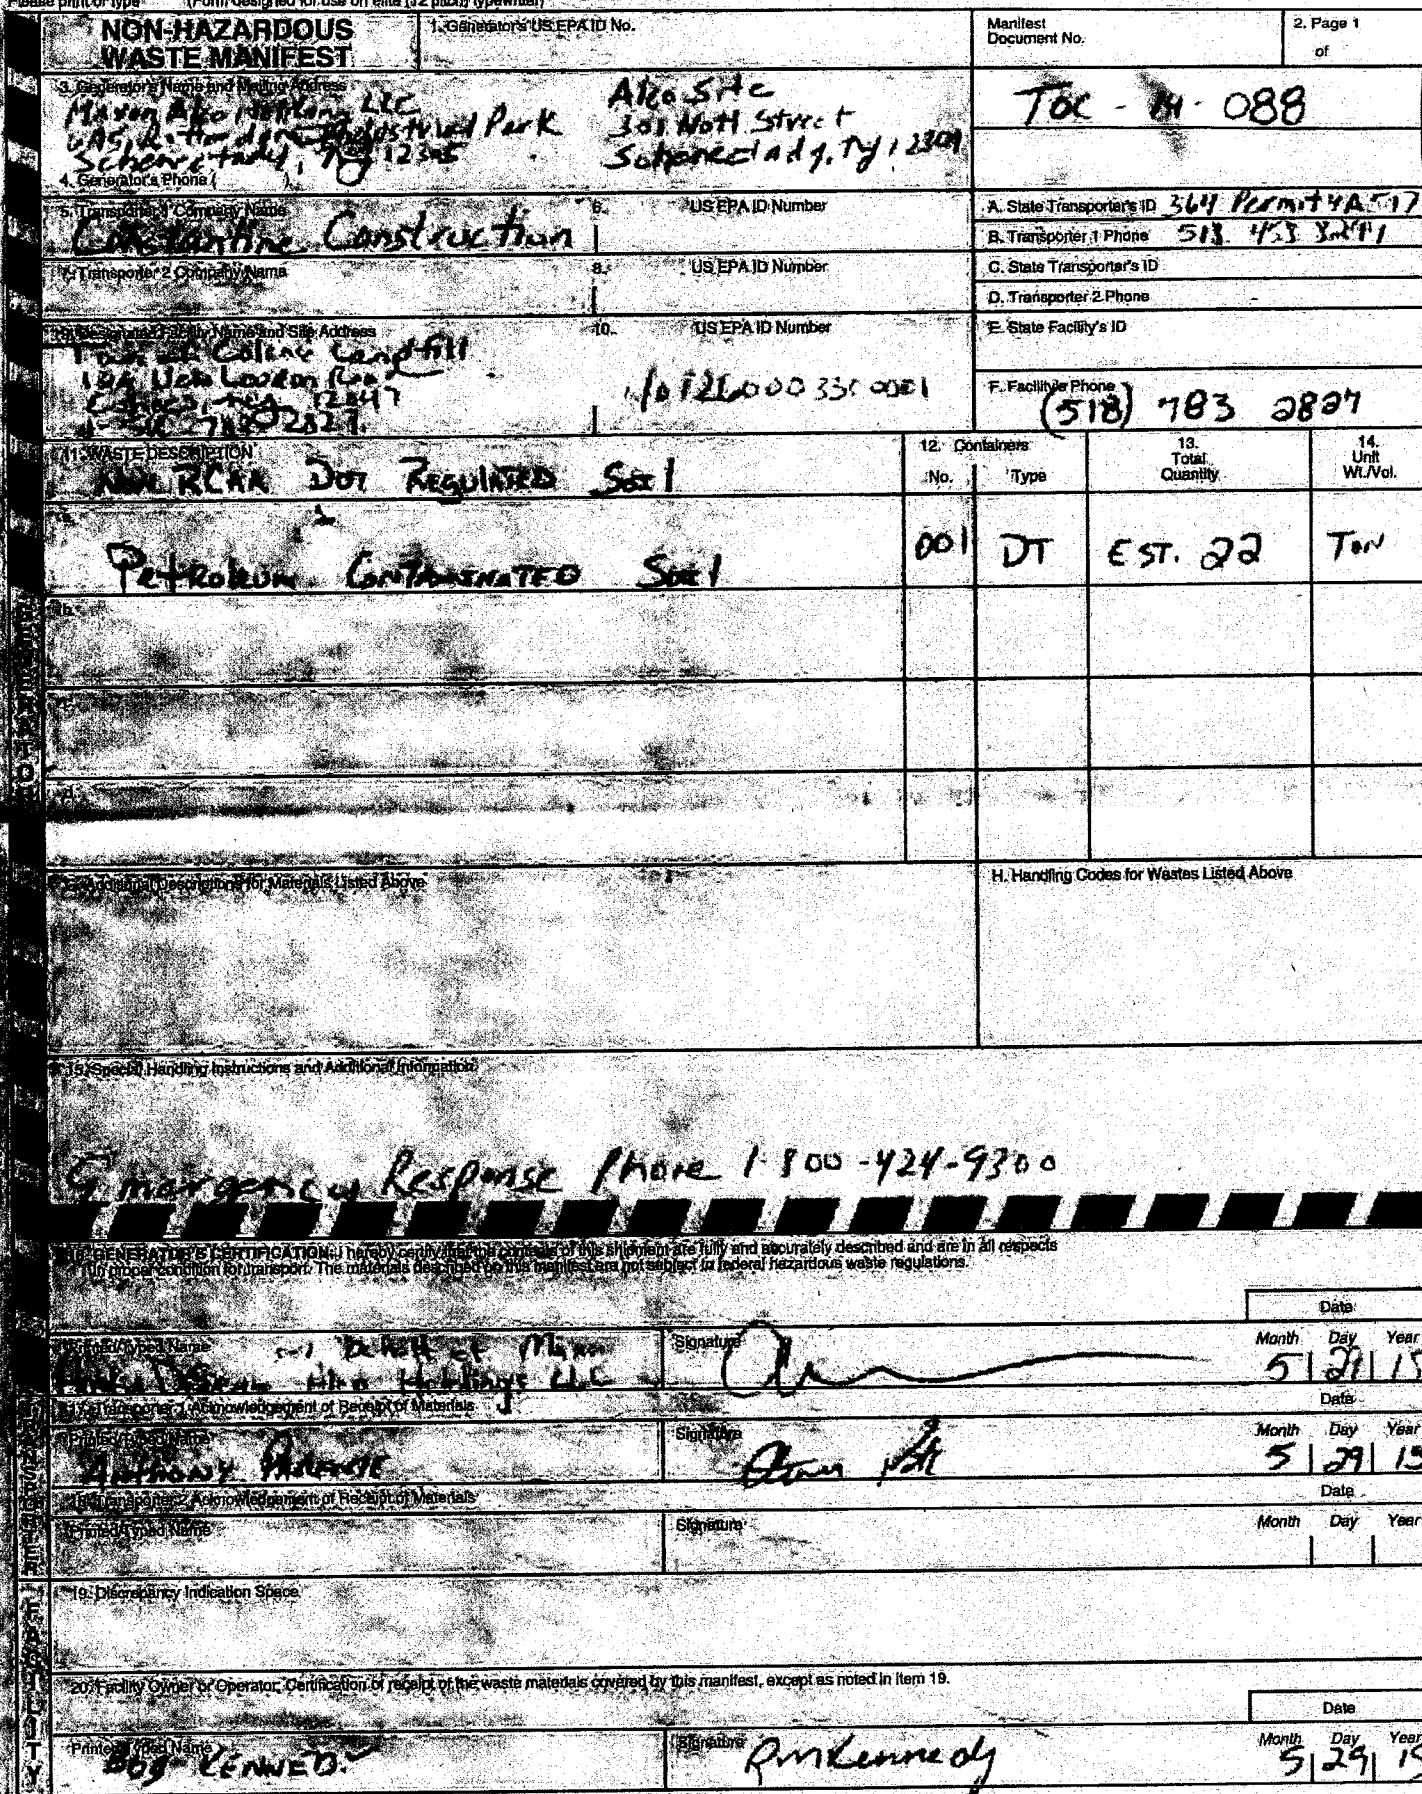 Please print or type (Form designed for use on elite (12 pitch) typewriter)
NON-HAZARDOUS
WASTE MANIFEST
1. Generator's US EPA ID No.
Manifest
Document No.
2. Page 1
of
3. Generator's Name and Mailing Address
Maxon Alco Holdings LLC
Industrial Park
Schenectady, Ny 12305
Alco Site
301 Nott Street
Schenectady, Ny, 12309
Toc - - 088
4. Generator's Phone ( )
5. Transporter 1 Company Name
6. US EPA ID Number
Constantine Construction
A. State Transporter's ID 364 Permit 4A517
B. Transporter 1 Phone 518 453
7. Transporter 2 Company Name
8. US EPA ID Number
C. State Transporter's ID
D. Transporter 2 Phone
9. Designated Facility Name and Site Address
10. US EPA ID Number
E. State Facility's ID
Colonie Landfill
New Loudon Road
12047
2827
F. Facility's Phone
(518) 783 2827
11. WASTE DESCRIPTION
Non RCRA DOT REGULATED Soil
12. Containers
No. Type
13.
Total
Quantity
14.
Unit
Wt./Vol.
a.
PetRoleum CONTAMINATED Soil
001 DT EST. 22 TON
b.
c.
d.
G. Additional Descriptions for Materials Listed Above
H. Handling Codes for Wastes Listed Above
15. Special Handling Instructions and Additional Information
Emergency Response Phone 1-800-424-9300
16. GENERATOR'S CERTIFICATION: I hereby certify that the contents of this shipment are fully and accurately described and are in all respects
in proper condition for transport. The materials described on this manifest are not subject to federal hazardous waste regulations.
Date
Printed/Typed Name
behalf of Maxon
Alco Holdings LLC
Signature
Month Day Year
5 29 15
17. Transporter 1 Acknowledgement of Receipt of Materials
Date
Printed/Typed Name
Anthony
Signature
Month Day Year
5 29 15
18. Transporter 2 Acknowledgement of Receipt of Materials
Date
Printed/Typed Name
Signature
Month Day Year
19. Discrepancy Indication Space
20. Facility Owner or Operator; Certification of receipt of the waste materials covered by this manifest, except as noted in item 19.
Date
Printed/Typed Name
Bob KENNEDY
Signature
RMKennedy
Month Day Year
5 29 15
GENERATOR
TRANSPORTER
FACILITY